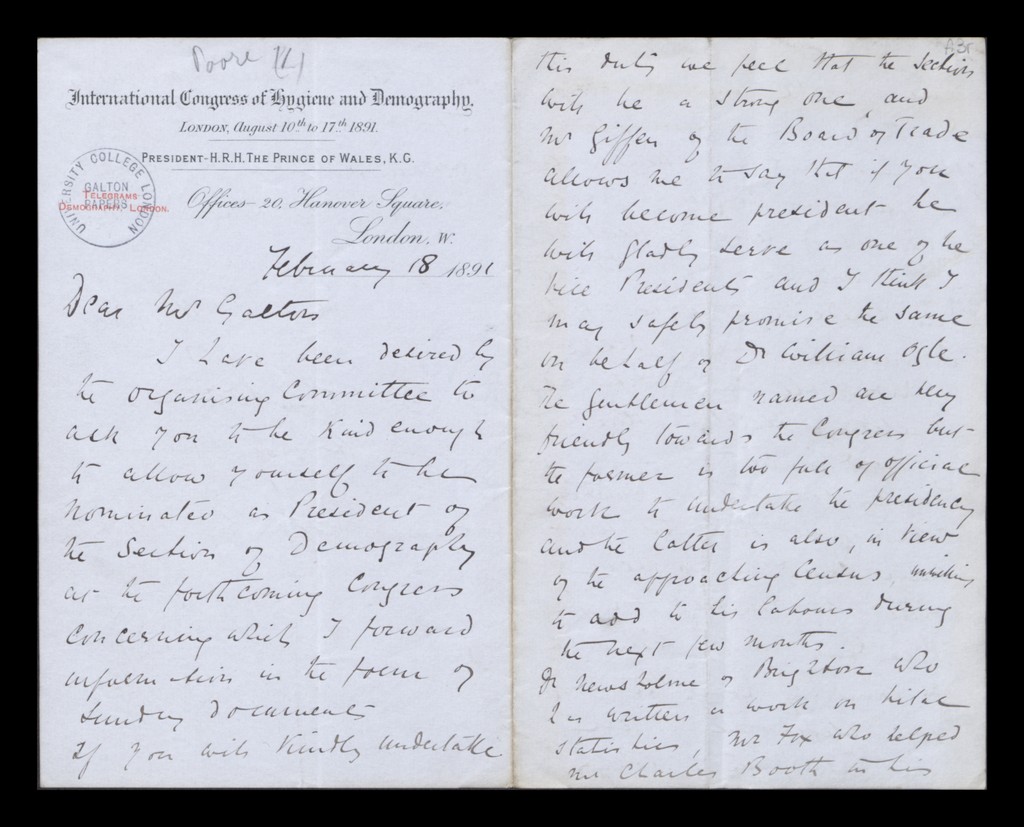 Poore (1)
International Congress of Hygiene and Demography.
LONDON, August 10th to 17th 1891.
PRESIDENT-H.R.H. THE PRINCE OF WALES, K.G.
UNIVERSITY COLLEGE LONDON
GALTON
PAPERS
TELEGRAMS
DEMOGRAPHY, LONDON.
Offices-20, Hanover Square,
London, W.
February 18 1891
Dear Mr Galton
I have been desired by
the organising Committee to
ask you to be kind enough
to allow yourself to be
nominated as President of
the Section of Demography
at the forthcoming Congress
concerning which I forward
information in the form of
sundry documents
If you will kindly undertake
A3r
this duty we feel that the section
will be a strong one, and
Mr Giffen of the Board of Trade
allows me to say that if you
will become president he
will gladly serve as one of the
Vice Presidents and I think I
may safely promise the same
on behalf of Dr William Ogle.
The gentlemen named are very
friendly towards the Congress but
the former is too full of official
work to undertake the presidency
and the latter is also, in view
of the approaching Census, unwilling
to add to his labours during
the next few months.
Dr Newsholme of Brighton who
has written a work on Vital
Statistics, Mr Fox who helped
Mr Charles Booth in his